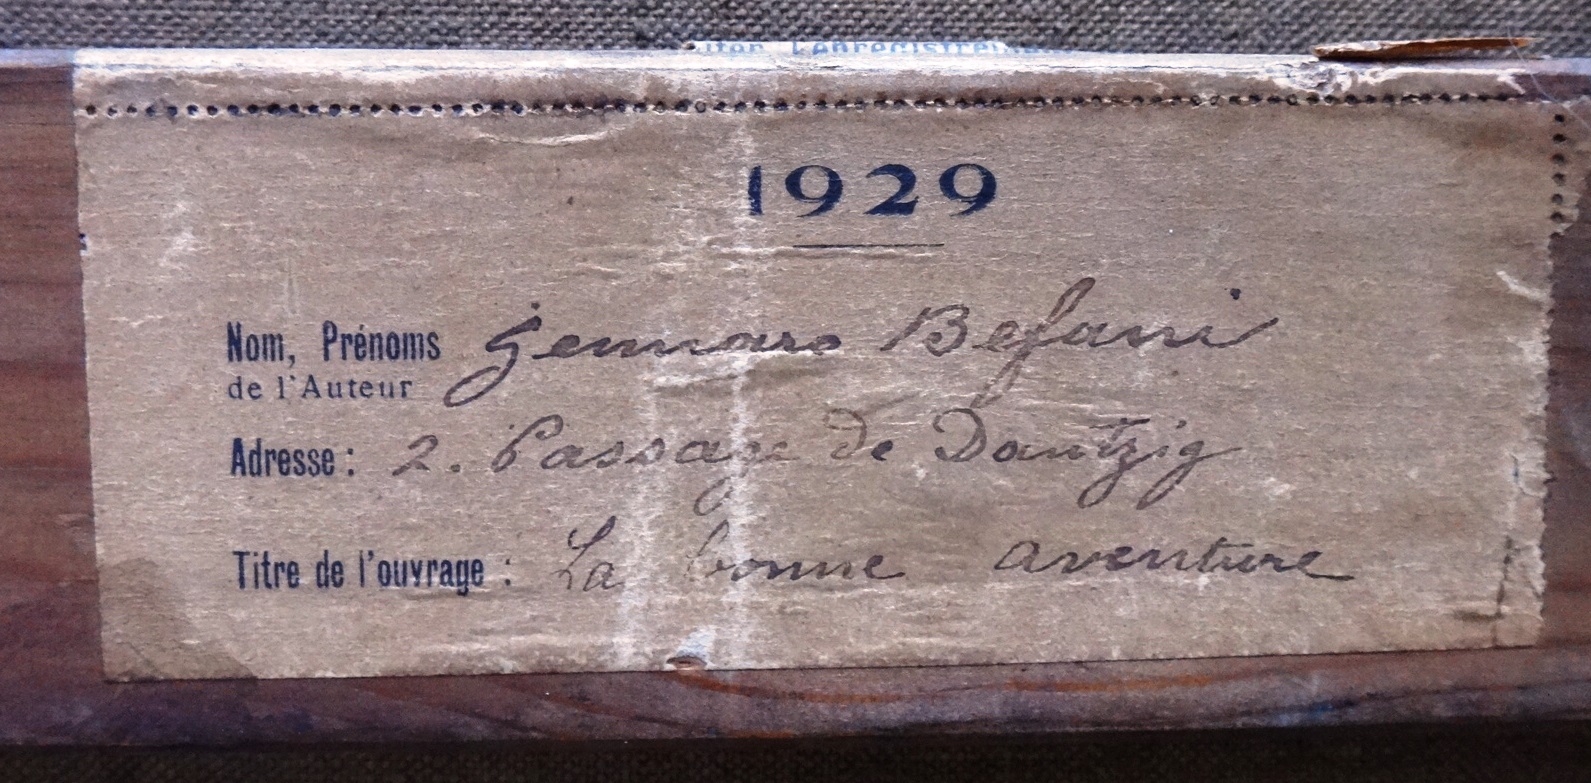 l'enregistrem
1929
Nom, Prénoms Gennaro Befani
de l'Auteur
Adresse : 2. Passage de Dantzig
Titre de l'ouvrage : La bonne aventure